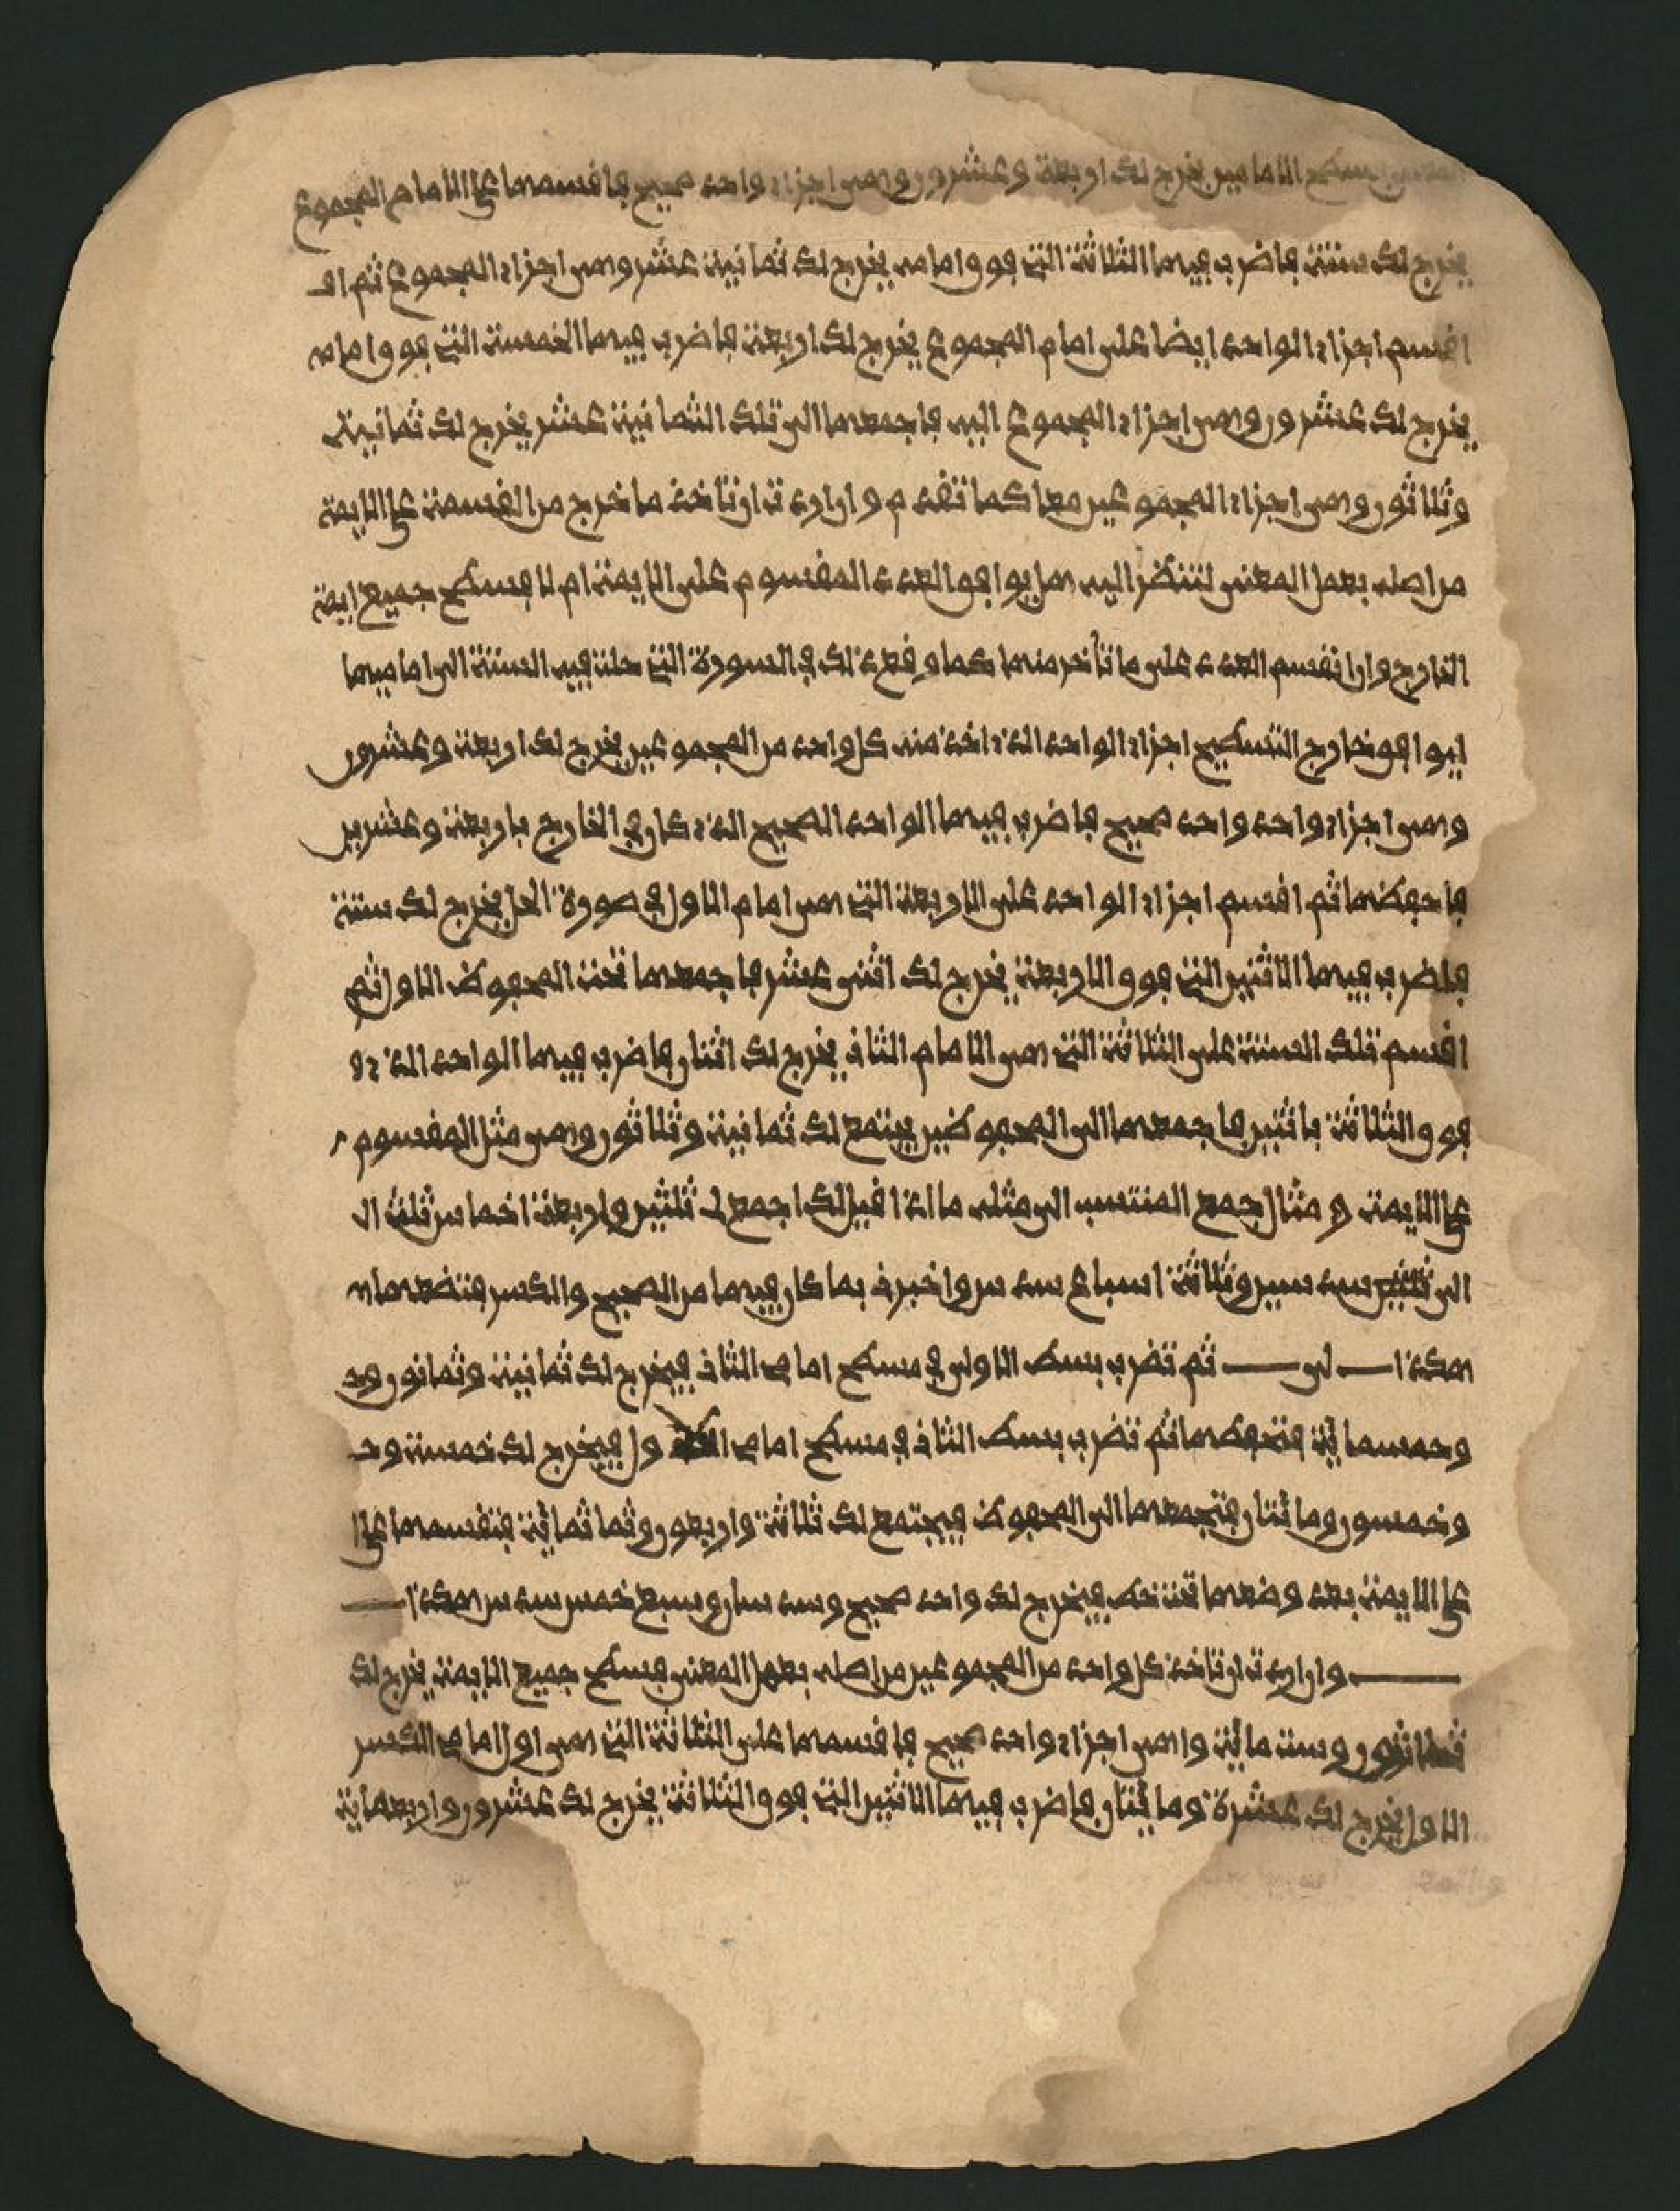 بسطح الامامين يخرج لك اربعة وعشرون وهى اجزاء واحد صحيح فاقسمها على الامام المجموع
يخرج لك ستة فاضرب فيها الثلاثة التى فوق امامه يخرج لك ثمانية عشر وهى اجزاء المجموع ثم اقـ
اقسم اجزاء الواحد ايضا على امام المجموع يخرج لك اربعة فاضرب فيها الخمسة التى فوق امامه
يخرج لك عشرون وهى اجزاء المجموع اليه فاجمعها الى تلك الثمانية عشر يخرج لك ثمانية
وثلاثون وهى اجزاء المجموعين معا كما تقدم وان اردت ان تاخذ ما خرج من القسمة على الايمة
من اصله بعمل المعنى لتنظر اليه هل يوافق العدد المقسوم على الايمة ام لا فسطح جميع ايمة
الخارج وان انقسم العدد على ما تأخر منها كما وقع لك فى السورة التى حلت فيه الستة الى اماميها
ليوافق خارج التسطيح اجزاء الواحد الذى اخذ منه كل واحد من المجموعين يخرج لك اربعة وعشرون
وهى اجزاء واحد واحد صحيح فاضرب فيها الواحد الصحيح الذى كان فى الخارج باربعة وعشرين
فاحفظها ثم اقسم اجزاء الواحد على الاربعة التى هى امام الاول فى صورة الحل يخرج لك ستة
فاضرب فيها الاثنين التى فوق الاربعة يخرج لك اثنى عشر فاجمعها تحت المحفوظ الاول ثم
اقسم تلك الستة على الثلاثة التى هى الامام الثانى يخرج لك اثنان فاضرب فيها الواحد الذى
فوق الثلاثة باثنين فاجمعها الى المحفوظين يجتمع لك ثمانية وثلاثون وهى مثل المقسوم
على الايمة ومثال جمع المنتسب الى مثله ما اذا قيل لك اجمع لى ثلثين واربعة اخماس ثلث الـ
الى ثلثين سدسين وثلاثة اسباع سدس واخبرنى بما كان فيها من الصحيح والكسر فتضعها
هكذا ثم تضرب بسط الاولى فى مسطح امامى الثانى فيخرج لك ثمانية وثمانون
وخمسماية فتحفظها ثم تضرب بسط الثانى فى مسطح امامى ول فيخرج لك خمسة وخـ
وخمسون ومائتان فتجمعها الى المحفوظ فيجتمع لك ثلاثة واربعون وثما ثمائية فتقسمها على ا
على الايمة بعد وضعها تحت خط فيخرج لك واحد صحيح وسدسان وسبع خمس سدس هكذا
وان اردت ان تاخذ كل واحد من المجموعين من اصله بعمل المعنى فسطح جميع الايمة يخرج لك
ثلاثون وست مائة واهى اجزاء واحد صحيح فاقسمها على الثلاثة التى هى اول امامى الكسر
الاول يخرج لك عشرة ومائتان فاضرب فيها الاثنين التى فوق الثلاثة يخرج لك عشرون واربعماية